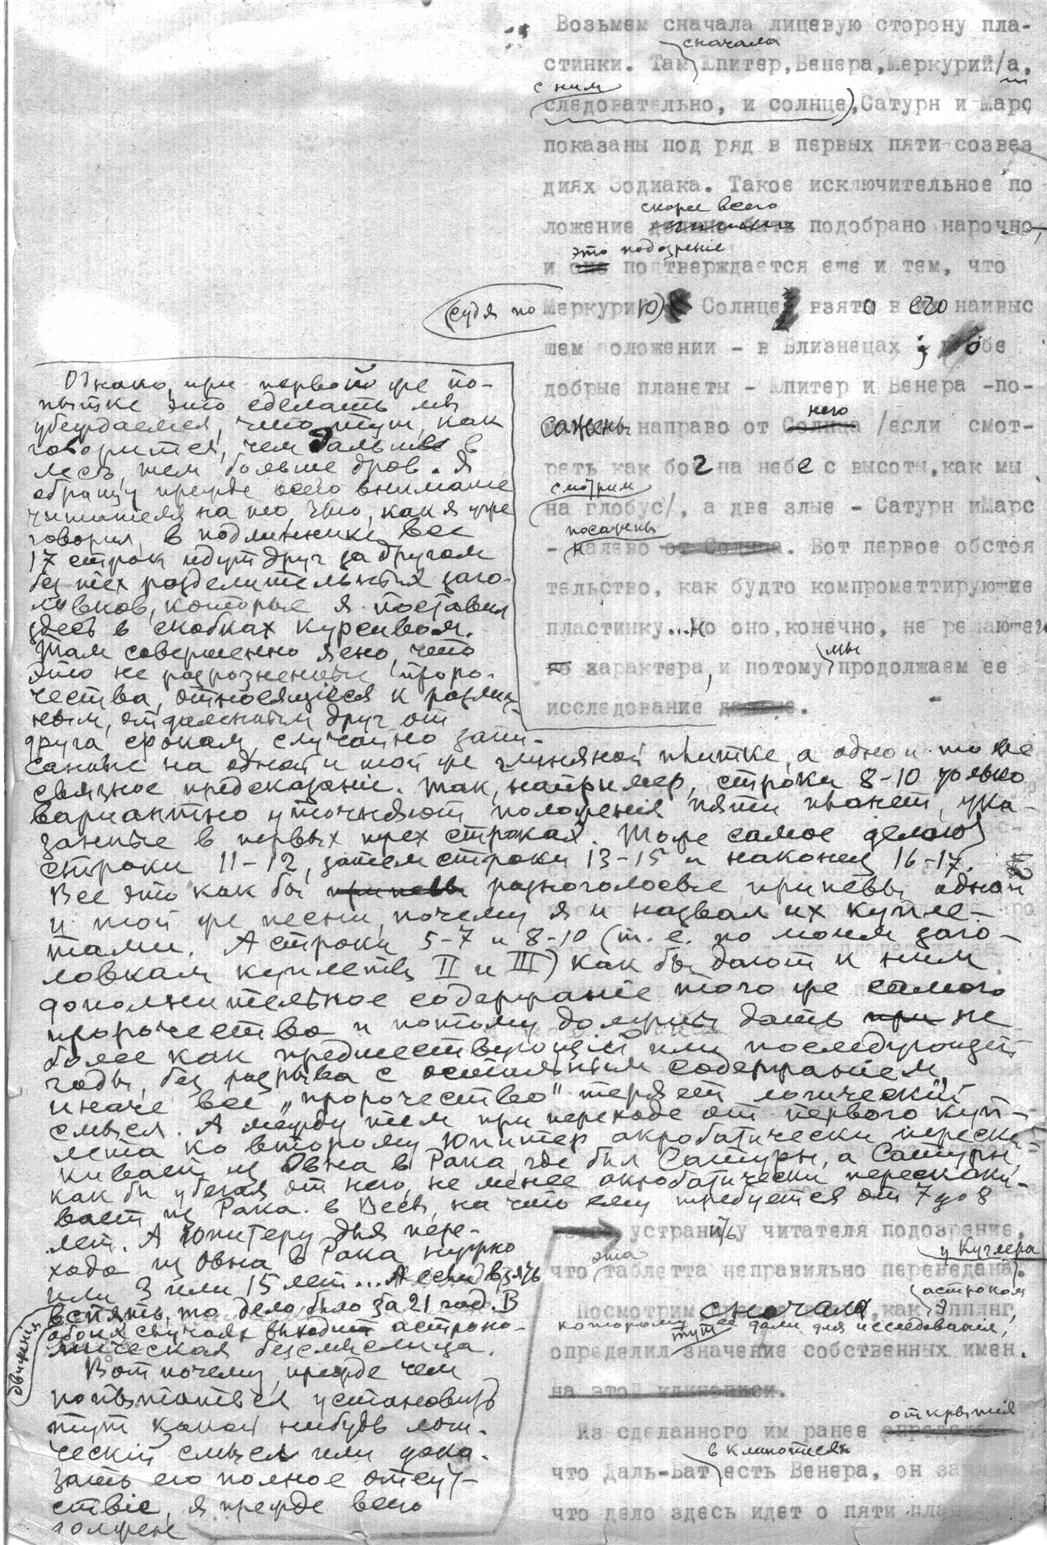 Возьмем сначала лицевую сторону пла-
сначала
стинки. Там Юпитер,Венера,Меркурий/а,
с ним
следовательно, и солнце),Сатурн и Марс
показаны под ряд в первых пяти созвез
диях Зодиака. Такое исключительное по
скорее всего
ложение подобрано нарочно,
это подозрение
и подтверждается еще и тем, что
(судя по Меркурию) Солнце взято в его наивыс
шем положении - в Близнецах ; обе
добрые планеты - Юпитер и Венера -по-
него
сажены направо от Солнца /если смот-
реть как бог на небе с высоты,как мы
смотрим
на глобус/, а две злые - Сатурн иМарс
посажены
- налево от Солнца. Вот первое обстоя
тельство, как будто компрометтирующие
пластинку...Но оно,конечно, не решающего
мы
характера, и потому продолжаем ее
исследование далее.
Однако, при первой же по-
пытке это сделать мы
убеждаемся, что тут, как
говорится, чем дальше в
лес, тем больше дров. Я
обращу прежде всего внимание
читателя на то что, как я уже
говорил, в подлиннике все
17 строк идут друг за другом
без тех разделительных заго-
ловков, которые я поставил
здесь в скобках курсивом.
Там совершенно ясно, что
это не разрозненные проро-
чества, относящіеся к различ-
ным, отдаленным друг от
друга срокам, случайно запи-
санные на одной и той же глиняной плитке, а одно и то же
связное предсказаніе. Так, например, строки 8-10 только
вариантно уточняют положения пяти планет, ука-
занные в первых трех строках. Тоже самое делают
строки 11-12, затем строки 13-15 и наконец 16-17.
Все это как бы припевы разноголосые припевы одной
и той же песни, почему я и назвал их купле-
тами. А строки 5-7 и 8-10 (т. е. по моим заго-
ловкам куплеты II и III) как бы дают к ним
дополнительное содержаніе того же самого
пророчества и потому должны дать при не
более как предшествующій или последующій
годы, без разрыва с остальным содержанием,
иначе все „пророчество" теряет логическій
смысл. А между тем при переходе от первого куп-
лета ко второму Юпитер акробатически переска-
кивает из Овна в Рака, где был Сатурн, а Сатурн
как бы убегая от него, не менее акробатически перескаки-
вает из Рака в Весы, на что ему требуется от 7 до 8
лет. А Юпитеру для пере-
хода из Овна в Рака нужно
или 3 или 15 лет... А если взять
вспять, то дело было за 21 год. В
движения
обоих случаях выходит астроно-
мическая безсмыслица.
Вот почему, прежде чем
попытаться установить
тут какой нибудь логи-
ческій смысл или дока-
зать его полное отсут-
ствіе, я прежде всего
должен
устранить у читателя подозрение,
эта у Куглера
что таблетта неправильно переведена.
астроном
Посмотрим сначала, как Эппинг,
которому тут ее дали для исследования,
определил значение собственных имен.
на этой клинописи.
открытия
Из сделанного им ранее
в клинописях
что Даль-Бат есть Венера, он
что дело здесь идет о пяти